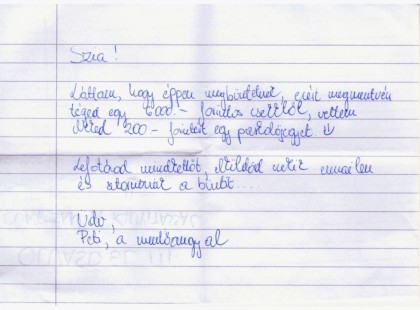 Szia!
Láttam, hogy éppen megbüntetnek, ezért megmentvén
téged egy 6000.- forintos csekktől, vettem
Neked 200.- forintért egy parkolójegyet.
Lefotózod mindkettőt, elküldöd nekik emailen
és stornírozzák a bírót...
Üdv,
Peti, a mentőangyal